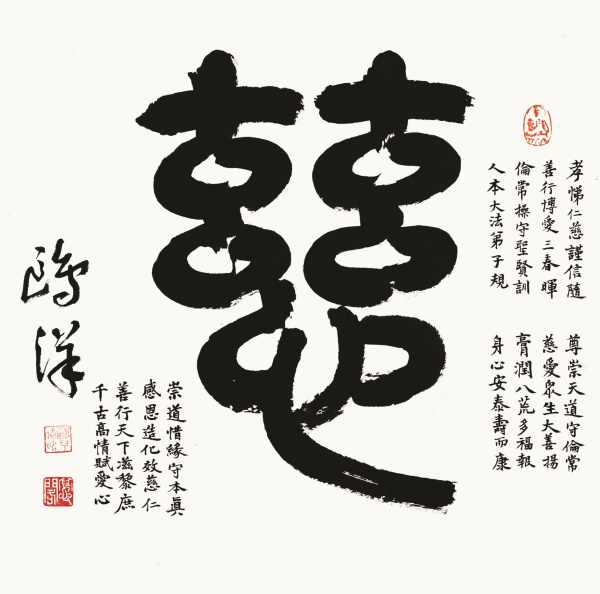 孝悌仁慈謹信隨
善行博愛三春暉
倫常操守聖賢訓
人本大法弟子規
尊崇天道守倫常
慈愛眾生大善揚
膏潤八荒多福報
身心安泰壽而康
慈
崇道惜緣守本真
感恩造化效慈仁
善行天下滋黎庶
千古高情賦愛心
鷗洋